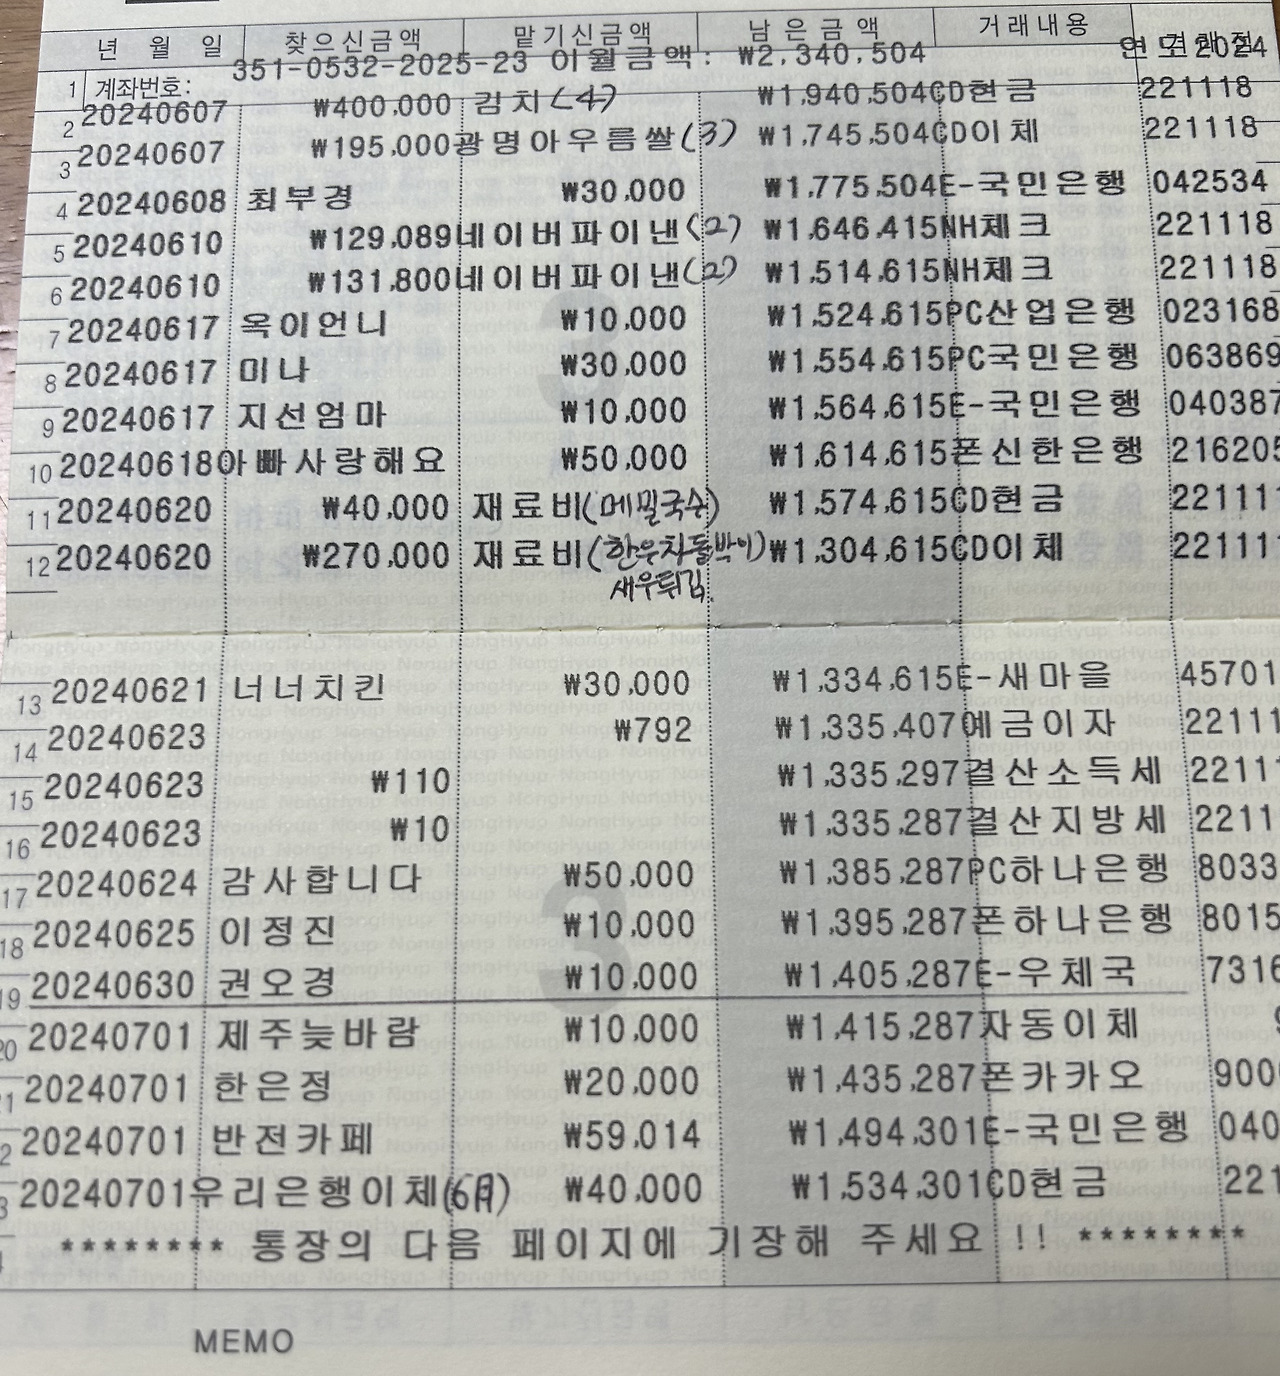 년 월 일 찾으신금액 맡기신금액 남은금액 거래내용
351-0532-2025-23 이월금액: ₩2,340,504 연도2024
1 계좌번호:
2 20240607 ₩400,000 김치(4) ₩1,940,504CD현금 221118
3 20240607 ₩195,000광명아우름쌀(3) ₩1,745,504CD이체 221118
4 20240608 최부경 ₩30,000 ₩1,775,504E-국민은행 042534
5 20240610 ₩129,089네이버파이낸(2) ₩1,646,415NH체크 221118
6 20240610 ₩131,800네이버파이낸(2) ₩1,514,615NH체크 221118
7 20240617 옥이언니 ₩10,000 ₩1,524,615PC산업은행 023168
8 20240617 미나 ₩30,000 ₩1,554,615PC국민은행 063869
9 20240617 지선엄마 ₩10,000 ₩1,564,615E-국민은행 040387
10 20240618아빠사랑해요 ₩50,000 ₩1,614,615폰신한은행 216205
11 20240620 ₩40,000 재료비(메밀국수) ₩1,574,615CD현금 22111
12 20240620 ₩270,000 재료비(한우차돌박이) ₩1,304,615CD이체 22111
새우튀김
13 20240621 너너치킨 ₩30,000 ₩1,334,615E-새마을 45701
14 20240623 ₩792 ₩1,335,407예금이자 22111
15 20240623 ₩110 ₩1,335,297결산소득세 22111
16 20240623 ₩10 ₩1,335,287결산지방세 2211
17 20240624 감사합니다 ₩50,000 ₩1,385,287PC하나은행 8033
18 20240625 이정진 ₩10,000 ₩1,395,287폰하나은행 8015
19 20240630 권오경 ₩10,000 ₩1,405,287E-우체국 7316
20 20240701 제주늦바람 ₩10,000 ₩1,415,287자동이체 9
21 20240701 한은정 ₩20,000 ₩1,435,287폰카카오 900
2 20240701 반전카페 ₩59,014 ₩1,494,301E-국민은행 040
3 20240701우리은행이체(6月) ₩40,000 ₩1,534,301CD현금 221
******** 통장의 다음 페이지에 기장해 주세요 !! ********
MEMO